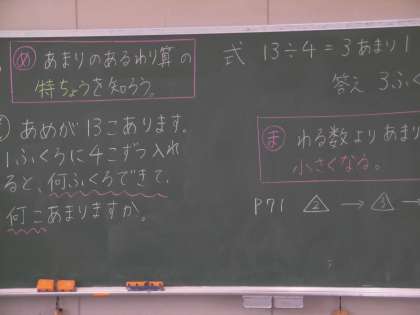 め あまりのあるわり算の
特ちょうを知ろう。
あめが13こあります。
1ふくろに4こずつ入れ
ると、何ふくろできて、
何こあまりますか。
式 13÷4=3あまり1
答え 3ふく
ま わる数よりあまり
小さくなる。
P71 △2 → △3 →